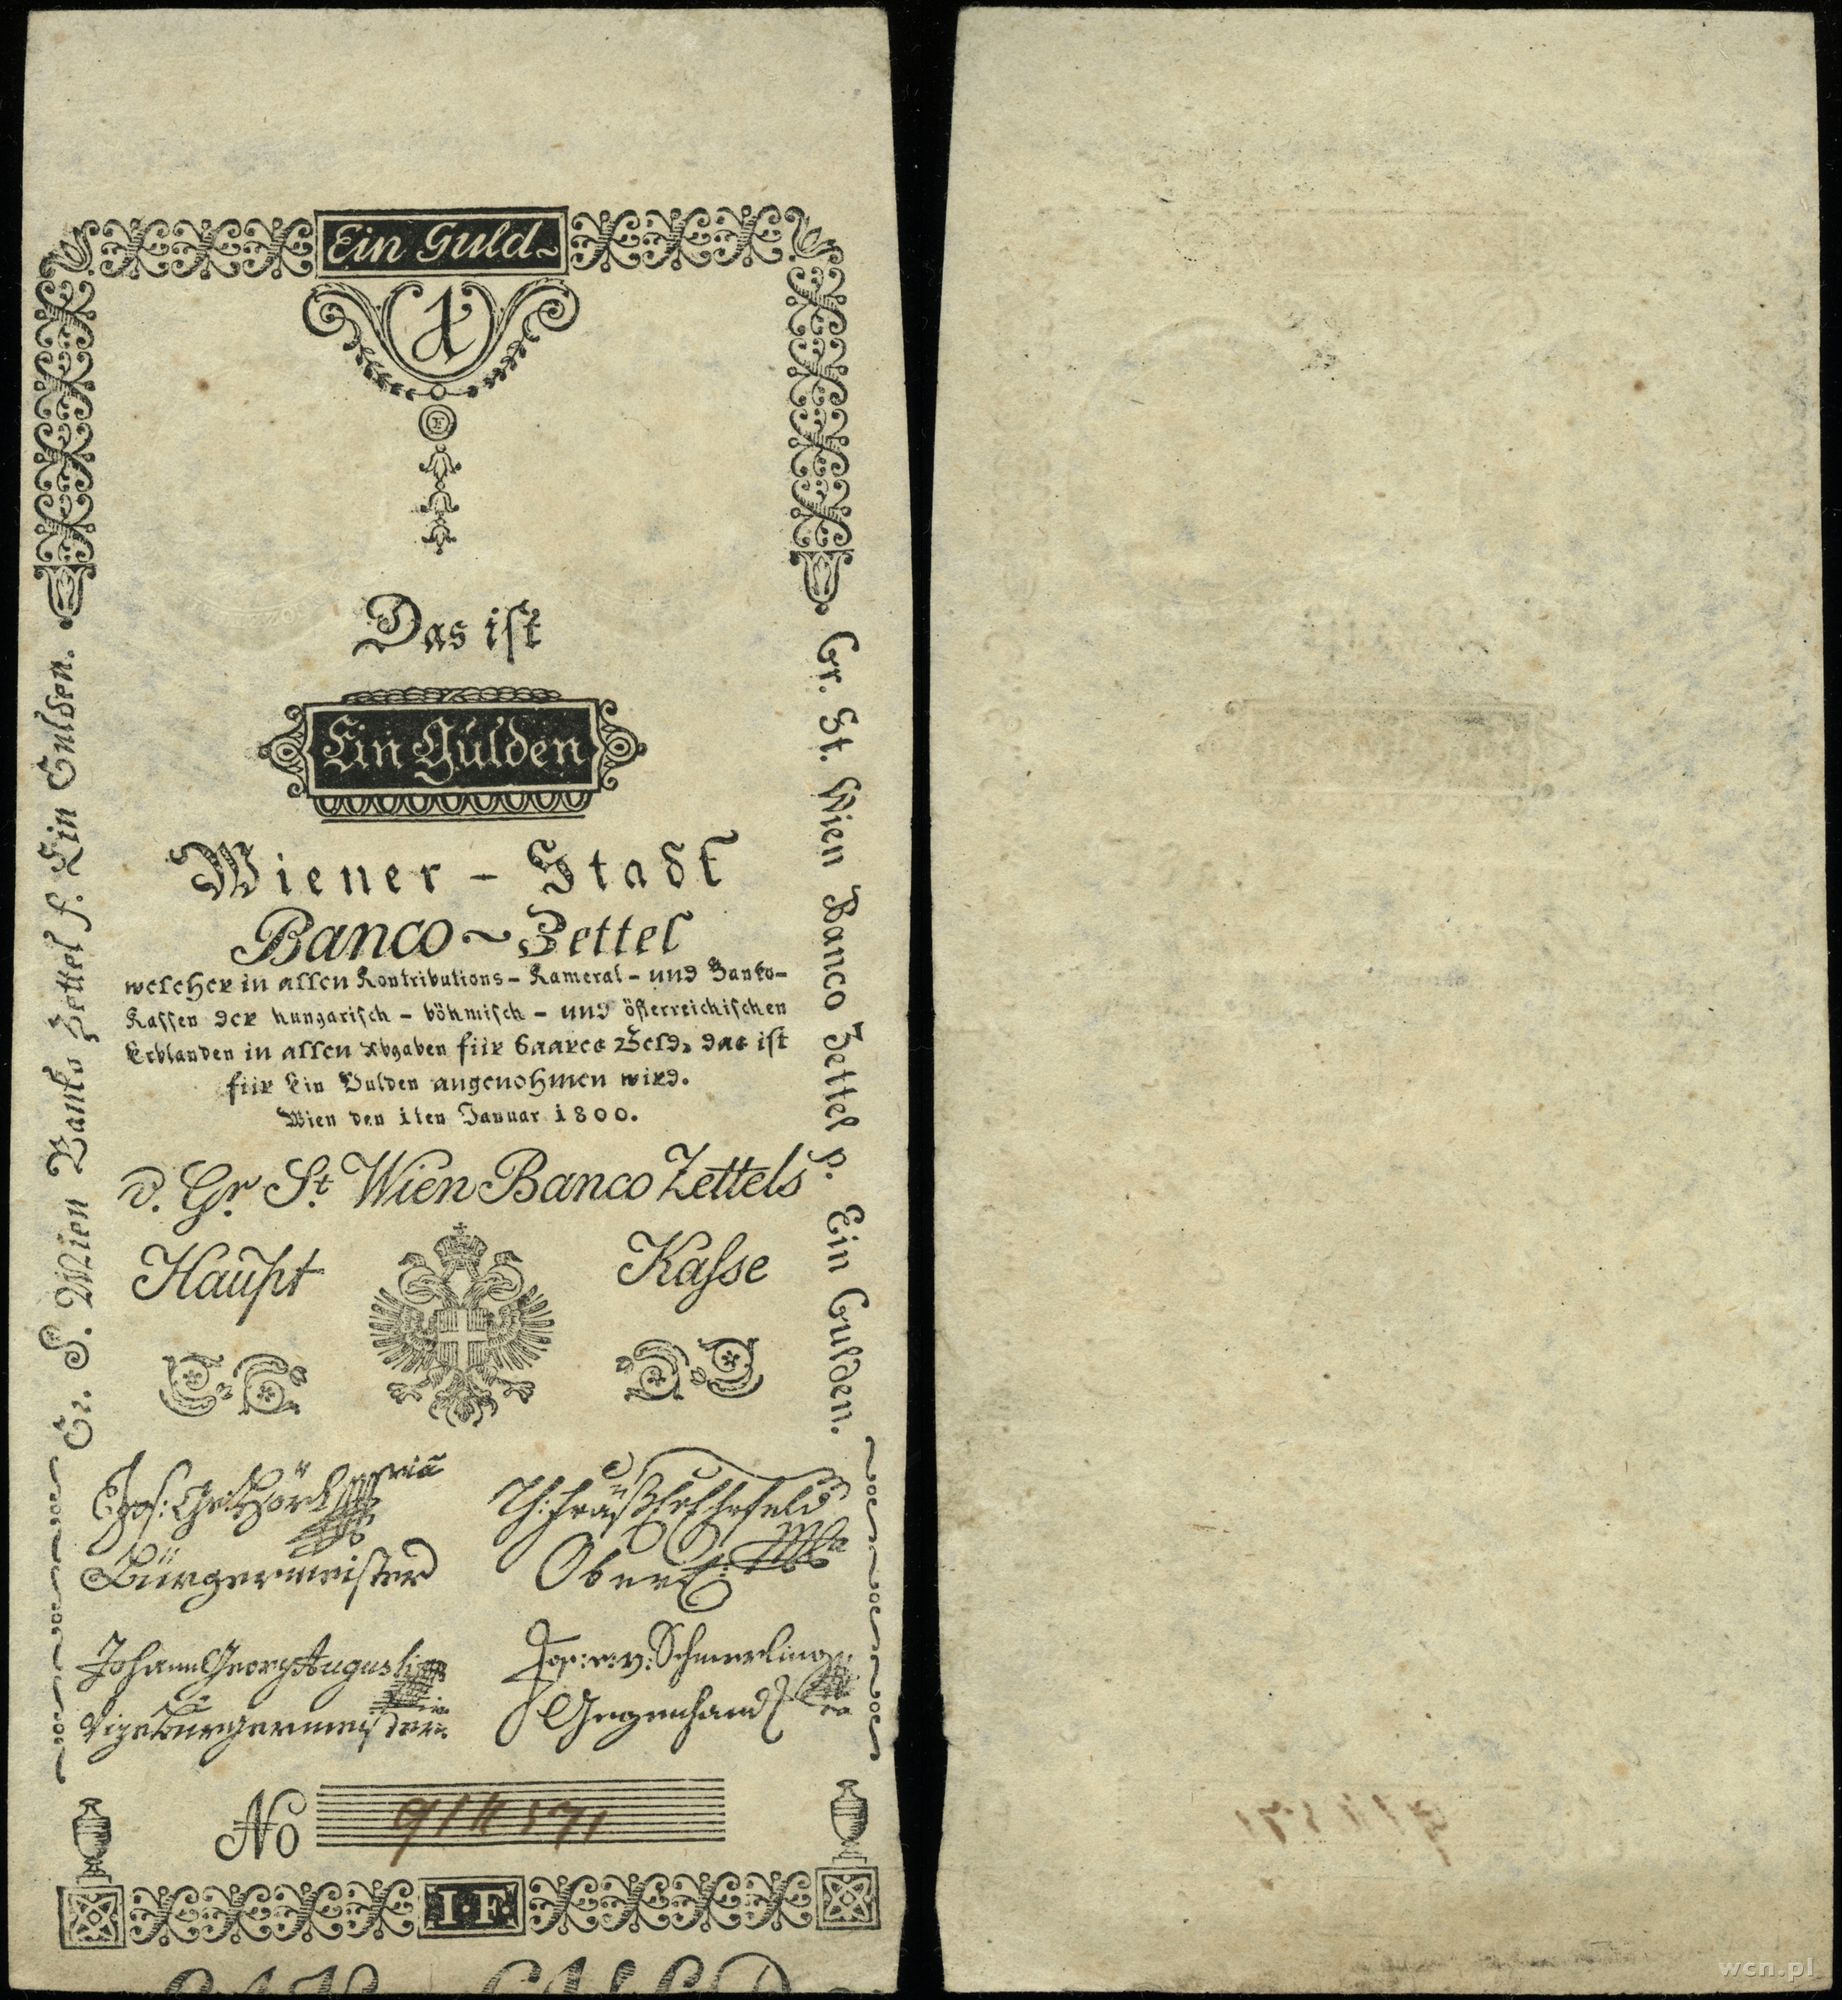 Ein Guld~
1
F
Das ist
Ein Gulden
Wiener - Stadt
Banco ~ Zettel
welcher in allen Kontributions - Kameral - und Banko-
Kassen der hungarisch - böhmisch - und österreichischen
Erblanden in allen Abgaben für baares Geld, das ist
für Ein Gulden angenohmen wird.
Wien den 1ten Januar 1800.
d. Gr. St. Wien Banco Zettels
Haupt Kasse
Gr. S. Wien Banko Zettel f. Ein Gulden.
Gr. St. Wien Banco Zettel p. Ein Gulden.
Bürgermeister
Johann Georg Augusti
Jos: v: Schmerling
ViceBürgermeister
Gegenhand
No
I·F·
wcn.pl